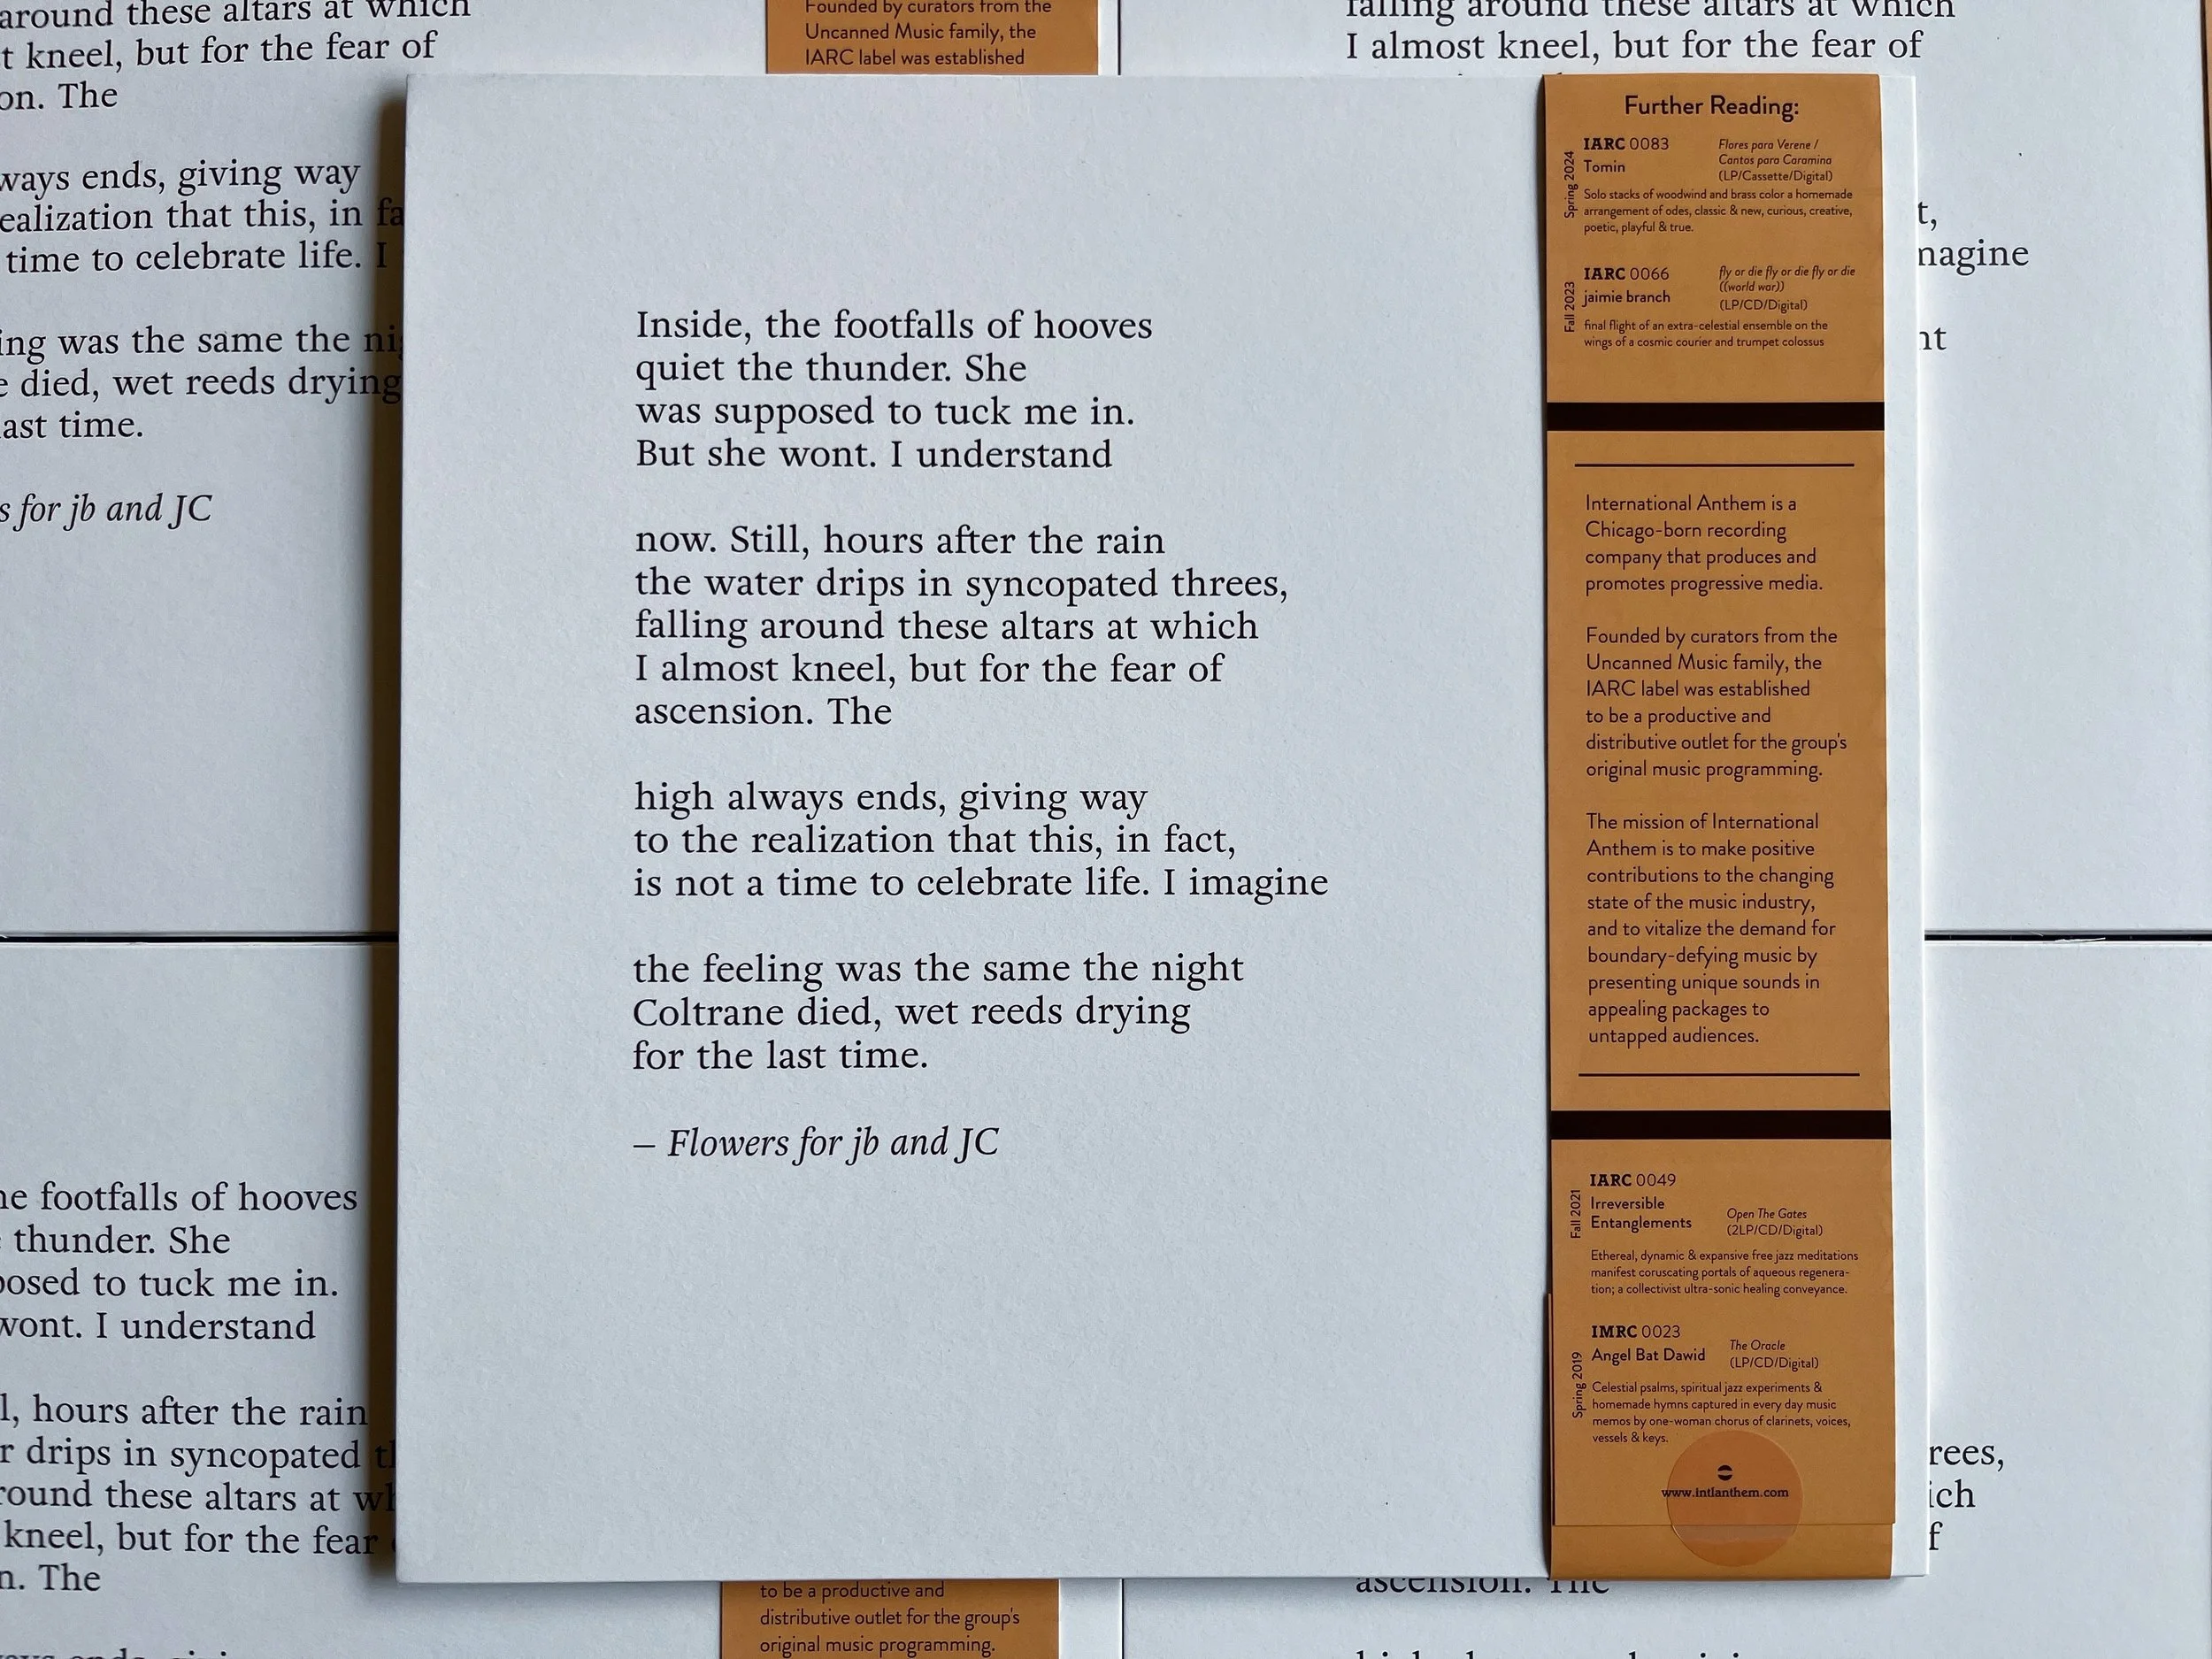 around these altars at which
t kneel, but for the fear of
on. The
ways ends, giving way
ealization that this, in fa
time to celebrate life. I
ing was the same the nig
e died, wet reeds drying
last time.
s for jb and JC
Founded by curators from the
Uncanned Music family, the
IARC label was established
falling around these altars at which
I almost kneel, but for the fear of
t,
nagine
ht
Inside, the footfalls of hooves
quiet the thunder. She
was supposed to tuck me in.
But she wont. I understand
now. Still, hours after the rain
the water drips in syncopated threes,
falling around these altars at which
I almost kneel, but for the fear of
ascension. The
high always ends, giving way
to the realization that this, in fact,
is not a time to celebrate life. I imagine
the feeling was the same the night
Coltrane died, wet reeds drying
for the last time.
– Flowers for jb and JC
Further Reading:
Spring 2024
IARC 0083
Tomin
Flores para Verene /
Cantos para Caramina
(LP/Cassette/Digital)
Solo stacks of woodwind and brass color a homemade
arrangement of odes, classic & new, curious, creative,
poetic, playful & true.
Fall 2023
IARC 0066
jaimie branch
fly or die fly or die fly or die
((world war))
(LP/CD/Digital)
final flight of an extra-celestial ensemble on the
wings of a cosmic courier and trumpet colossus
International Anthem is a
Chicago-born recording
company that produces and
promotes progressive media.
Founded by curators from the
Uncanned Music family, the
IARC label was established
to be a productive and
distributive outlet for the group's
original music programming.
The mission of International
Anthem is to make positive
contributions to the changing
state of the music industry,
and to vitalize the demand for
boundary-defying music by
presenting unique sounds in
appealing packages to
untapped audiences.
Fall 2021
IARC 0049
Irreversible
Entanglements
Open The Gates
(2LP/CD/Digital)
Ethereal, dynamic & expansive free jazz meditations
manifest coruscating portals of aqueous regenera-
tion; a collectivist ultra-sonic healing conveyance.
Spring 2019
IMRC 0023
Angel Bat Dawid
The Oracle
(LP/CD/Digital)
Celestial psalms, spiritual jazz experiments &
homemade hymns captured in every day music
memos by one-woman chorus of clarinets, voices,
vessels & keys.
www.intlanthem.com
he footfalls of hooves
thunder. She
posed to tuck me in.
wont. I understand
l, hours after the rain
r drips in syncopated t
round these altars at wh
kneel, but for the fear
n. The
to be a productive and
distributive outlet for the group's
original music programming.
rees,
ich
f
ascension. The